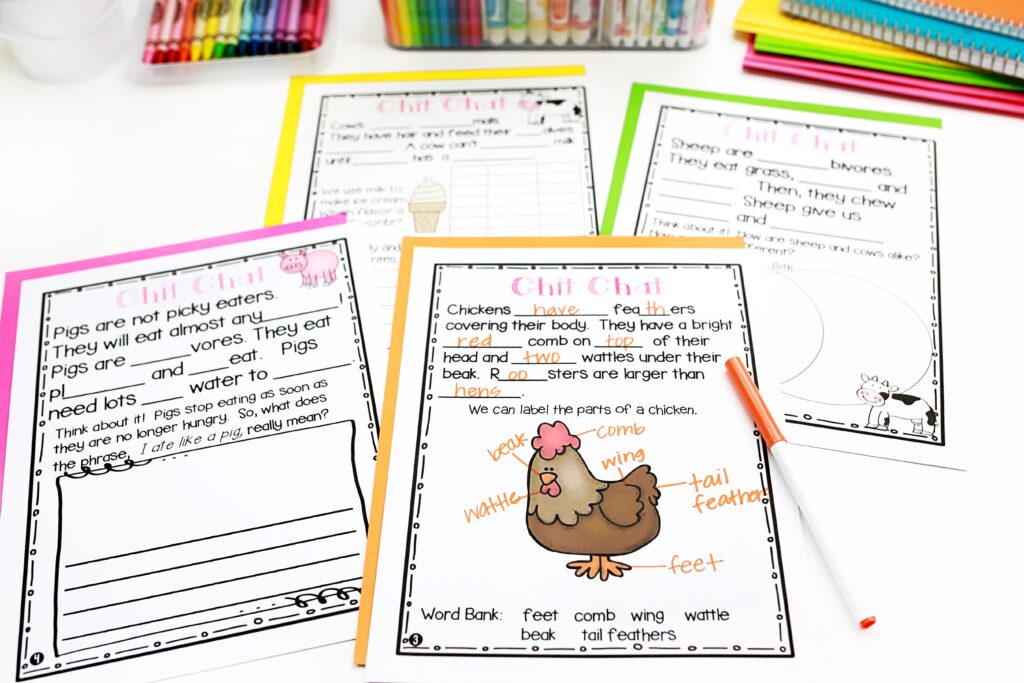 Chit Chat
Cows ______ ______ mals.
They have hair and feed their ____alves
______. A cow can? ______ milk
until ______ has a ______.
We use milk to
make ice cream.
Which flavor is
Chit Chat
Sheep are ______ bivores.
They eat grass, ______ and
______. Then, they chew
______. Sheep give us
______ and ______.
Think about it! How are sheep and cows alike?
Both
Chit Chat
Pigs are not picky eaters.
They will eat almost any______!
Pigs are ______vores. They eat
pl______ and ____eat. Pigs
need lots ____ water to ______.
Think about it! Pigs stop eating as soon as
they are no longer hungry. So, what does
the phrase, I ate like a pig, really mean?
4
Chit Chat
Chickens have feathers
covering their body. They have a bright
red comb on top of their
head and two wattles under their
beak. Roosters are larger than
hens.
We can label the parts of a chicken.
beak
comb
wing
wattle
tail
feathers
feet
Word Bank: feet comb wing wattle
beak tail feathers
3